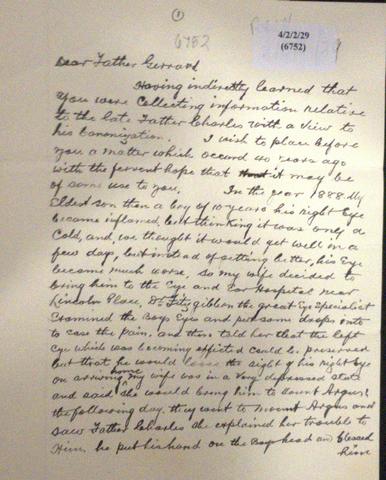 ①
6752
4/2/2/29
(6752)
Dear Father Gerrard
Having indirectly learned that
you were collecting information relative
to the late Father Charles with a view to
his Canonization. I wish to place before
you a matter which occurd 40 years ago
with the fervent hope that it may be
of some use to you. In the year 1888. My
Eldest son then a boy of 10 years his right Eye
became inflamed, but thinking it was only a
Cold, and, we thought it would get well in a
few days, but instead of getting better, his Eye
became much worse, so my wife decided to
bring him to the Eye and Ear Hospital near
Lincoln Place, Dr Fitzgibbon the great Eye Specialist
Examined the Boys Eyes and put some drops into
to ease the pain, and then told her that the left
Eye which was becoming afficted could be preserved
but that he would loose the sight of his right Eye
on arriving home my wife was in a very depressed state
and said she would bring him to Mount Argus,
the following day. they went to Mount Argus and
saw Father Charles she explained her trouble to
Him, he put his hand on the Boys head and blessed
him